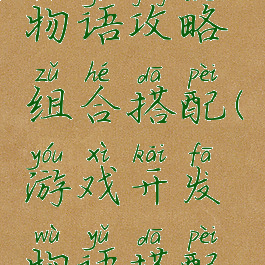 物语攻略
zǔ hé dā pèi
组合搭配(
yóu xì kāi fā
游戏开发
wù yǔ dā pèi
物语搭配